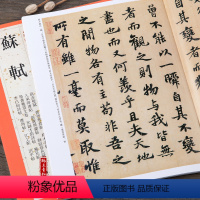 曾不能以一瞬自其不變
者而觀之則物與我皆無
盡也而又何羨乎且夫天地
之間物各有主苟非吾之
所有雖一毫而莫取惟
蘇軾
粉象优品